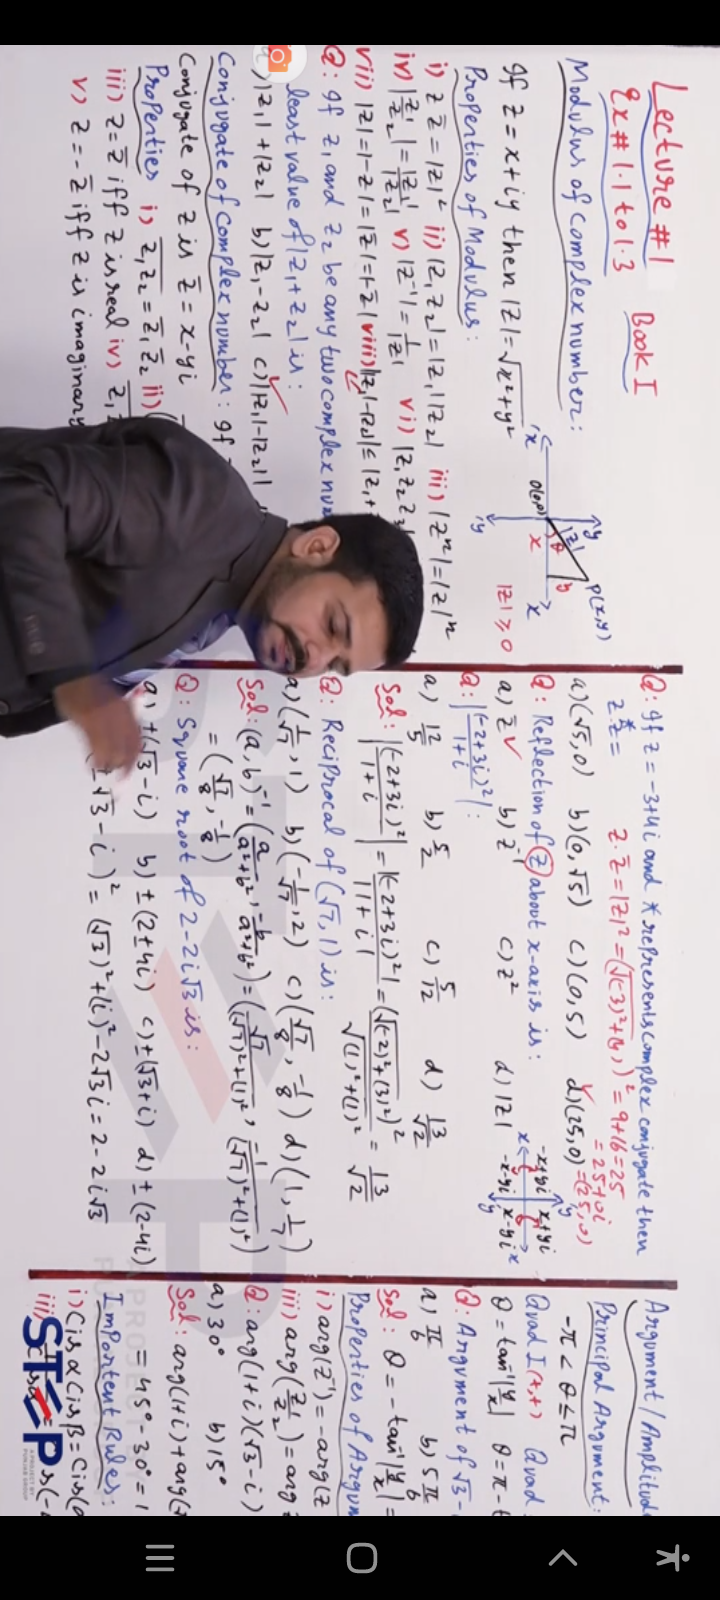 Lecture #1
Ex#1.1 to 1.3 Book I
Modulus of Complex number:
If z = x+iy then |z| = √x²+y²
|z| ≥ 0
P(x,y)
O(0,0)
|z|
θ
x
y
x
y
x'
y'
Properties of Modulus:
i) z z̄ = |z|² ii) |z₁z₂| = |z₁||z₂| iii) |zⁿ| = |z|ⁿ
iv) |z₁/z₂| = |z₁|/|z₂| v) |z⁻¹| = 1/|z| vi) |z₁z₂z₃
vii) |z| = |-z| = |z̄| = |-z̄| viii) ||z₁|-|z₂|| ≤ |z₁+
Q: If z₁ and z₂ be any two complex num
least value of |z₁+z₂| is:
|z₁|+|z₂| b) |z₁-z₂| c) ||z₁|-|z₂|| ✓
Conjugate of Complex number: If
Conjugate of z is z̄ = x-yi
Properties i) z̄₁z̄₂ = z̄₁ z̄₂ ii)
iii) z = z̄ iff z is real iv)
v) z = -z̄ iff z is imaginary
Q: If z = -3+4i and * represents complex conjugate then
z.z* =
z.z̄ = |z|² = (√(-3)²+(4)²)² = 9+16 = 25
= 25+0i
= (25,0)
a) (√5,0) b) (0,√5) c) (0,5) d) (25,0) ✓
Q: Reflection of z about x-axis is:
a) z̄ ✓ b) z⁻¹ c) z² d) |z|
-x+yi x+yi
-x-yi x-yi
x' x
y
y'
Q: |(-2+3i)²/1+i| :
a) 12/5 b) 5/2 c) 5/12 d) 13/√2
Sol: |(-2+3i)²/1+i| = |(-2+3i)²|/|1+i| = (√(-2)²+(3)²)²/√(1)²+(1)² = 13/√2
Q: Reciprocal of (√7,1) is:
a) (1/√7, 1) b) (-1/√7, 2) c) (√7/8, -1/8) d) (1, 1/7)
Sol: (a,b)⁻¹ = (a/a²+b², -b/a²+b²) = (√7/(√7)²+(1)², -1/(√7)²+(1)²)
= (√7/8, -1/8)
Q: Square root of 2-2i√3 is:
a) ±(√3-i) b) ±(2±4i) c) ±(√3+i) d) ±(2-4i)
√3-i)² = (√3)²+(i)²-2√3i = 2-2i√3
Argument/Amplitude
Principal Argument:
-π < θ ≤ π
Quad I(+,+) Quad
θ = tan⁻¹|y/x| θ = π-t
Q: Argument of √3-
a) π/6 b) 5π/6
Sol: θ = -tan⁻¹|y/x| =
Properties of Argum
i) arg(z⁻¹) = -arg(z
iii) arg(z₁/z₂) = arg z
Q: arg(1+i)(√3-i)
a) 30° b) 15°
Sol: arg(1+i)+arg(
= 45°-30° = 1
Important Rules:
i) Cisα Cisβ = Cis(α
iii)
STEP
A PROJECT BY
PUNJAB GROUP